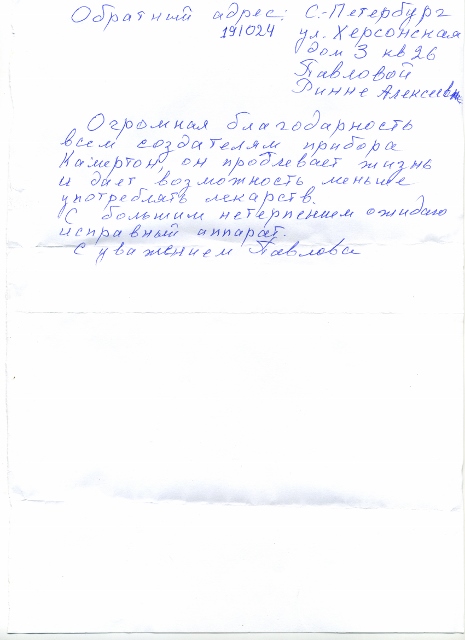 Обратный адрес: С.-Петербург
191024 ул. Херсонская
дом 3 кв 26
Павловой
Ринне Алексеевне
Огромная благодарность
всем создателям прибора
Камертон, он продлевает жизнь
и дает возможность меньше
употреблять лекарств.
С большим нетерпением ожидаю
исправный аппарат.
С уважением Павлова